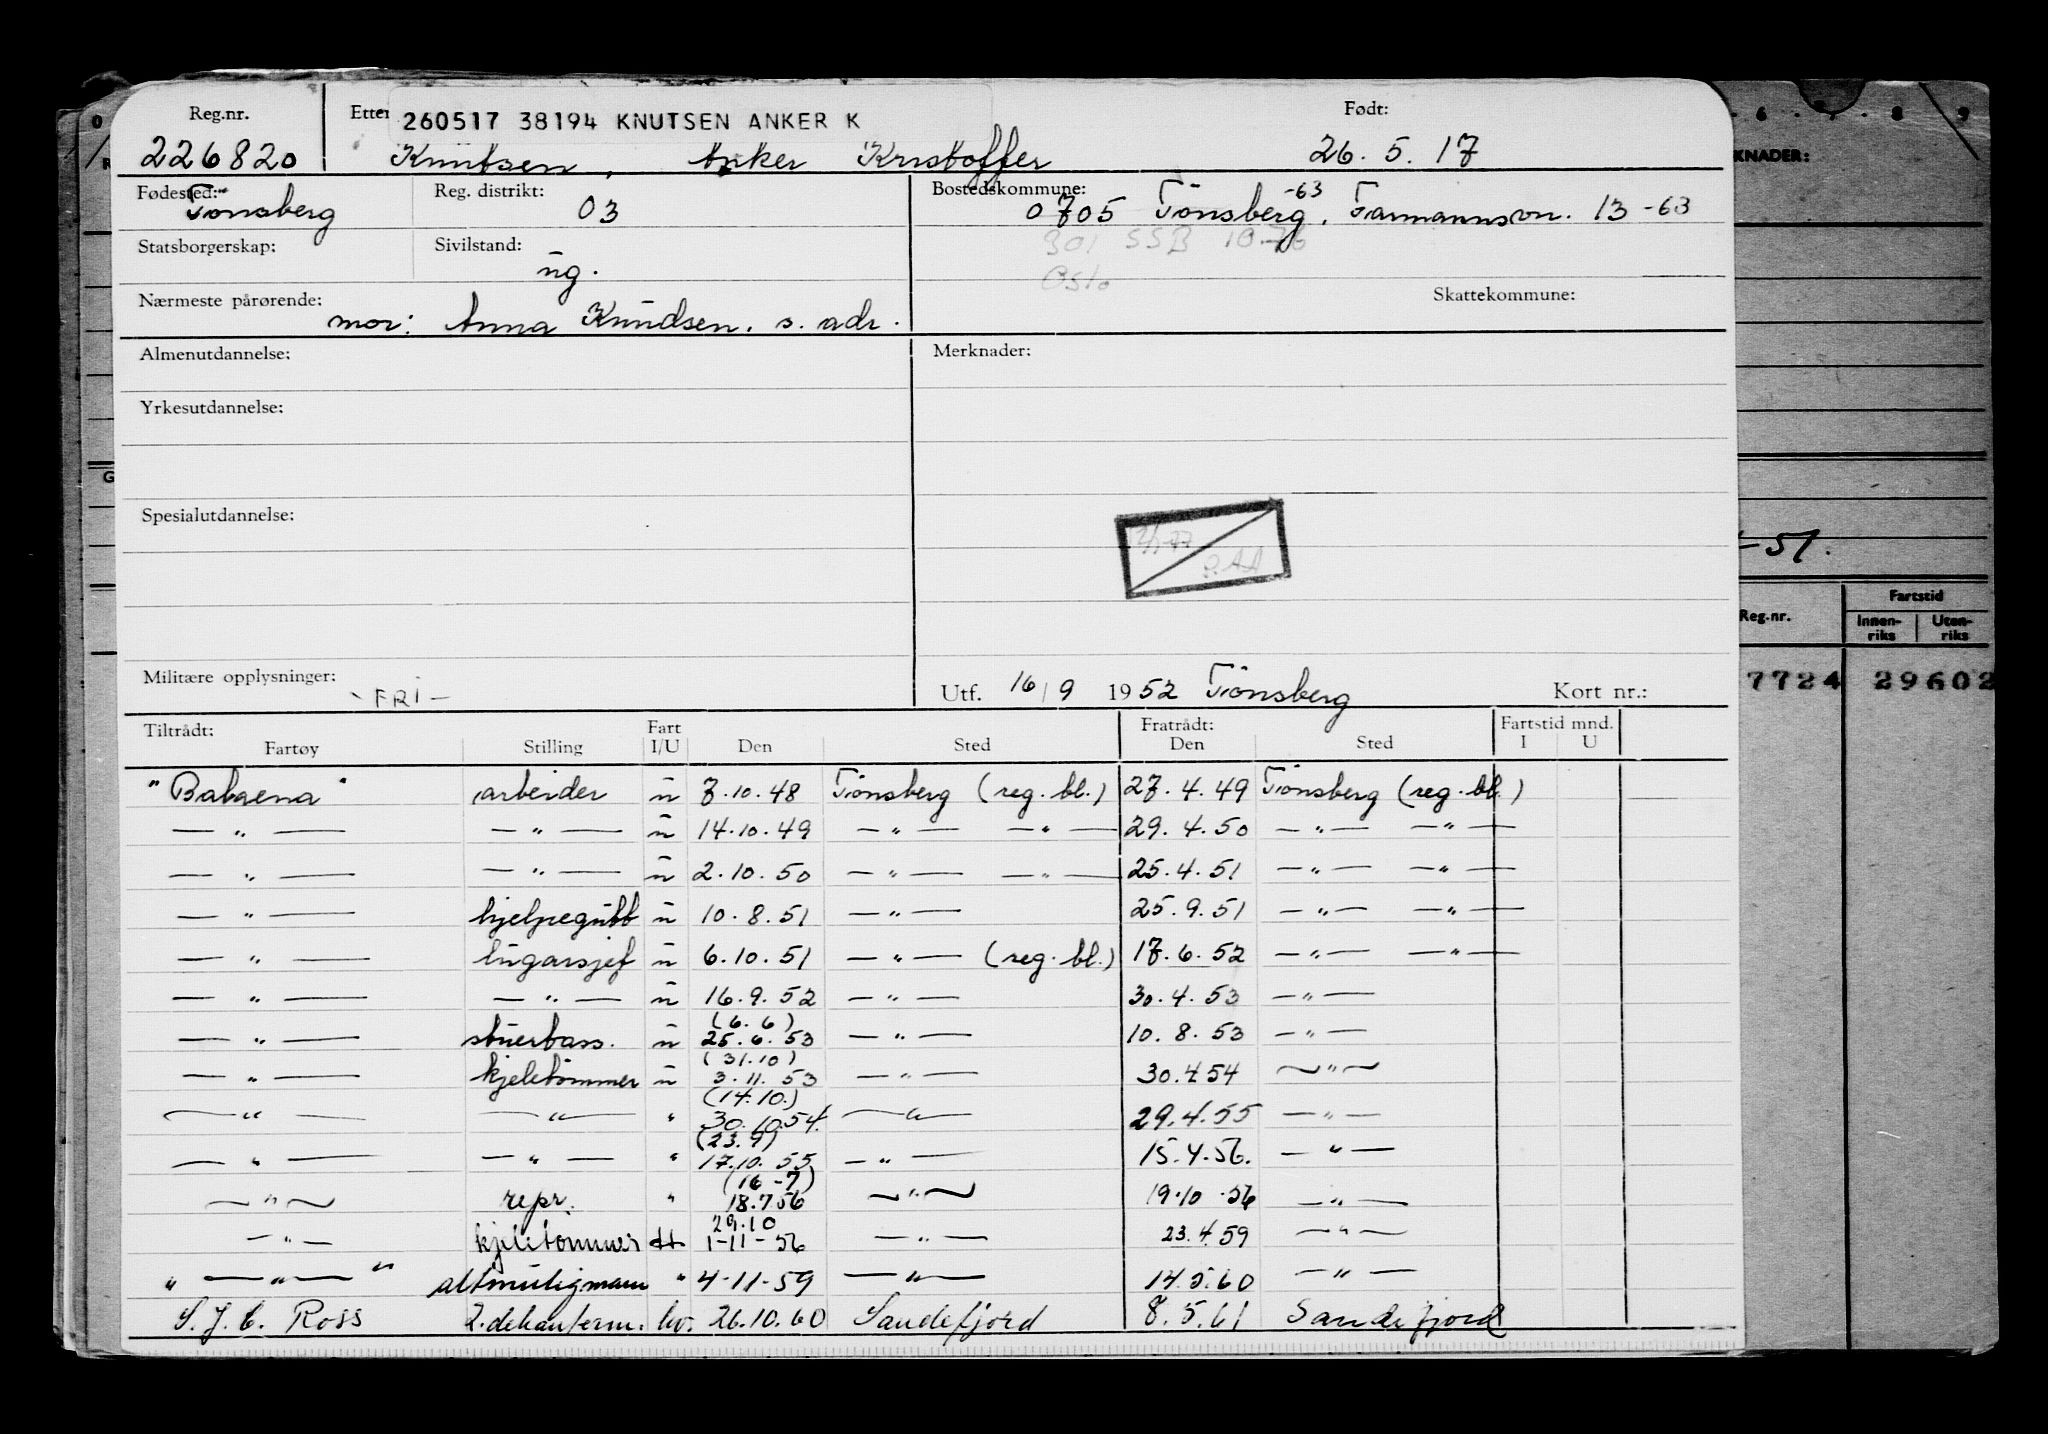 Reg.nr. Etter 260517 38194 KNUTSEN ANKER K Født:
226820 Knutsen, Anker Kristoffer 26.5.17
Fødested: Reg. distrikt: Bostedskommune: -63
Tønsberg 03 0705 Tønsberg, Farmannsvn. 13 -63
Statsborgerskap: Sivilstand: 301 SSB 10.76
ug. Oslo
Nærmeste pårørende: Skattekommune:
mor: Anna Knudsen. s. adr.
Almenutdannelse: Merknader:
Yrkesutdannelse:
Spesialutdannelse:
Militære opplysninger: Utf. 16/9 1952 Tønsberg Kort nr.:
- FRI -
Tiltrådt: Fart Fratrådt: Fartstid mnd.
Fartøy Stilling I/U Den Sted Den Sted I U
"Balaena" arbeider u 7.10.48 Tønsberg (reg. bl.) 27.4.49 Tønsberg (reg. bl.)
— " — — " — u 14.10.49 — " — — " — 29.4.50 — " — — " —
— " — — " — u 2.10.50 — " — — " — 25.4.51 — " — — " —
— " — hjelpegutt u 10.8.51 — " — 25.9.51 — " — — " —
— " — lugarsjef u 6.10.51 — " — (reg. bl.) 17.6.52 — " — — " —
— " — — " — u 16.9.52 — " — 30.4.53 — " —
(6.6)
— " — stuertass. u 25.6.53 — " — 10.8.53 — " —
(31.10)
— " — kjeletømmer u 3.11.53 — " — 30.4.54 — " —
(14.10.)
— " — — " — " 30.10.54. — " — 29.4.55 — " —
(23.9)
— " — — " — " 17.10.55 — " — 15.4.56. — " —
(16-7)
— " — repr. " 18.7.56 — " — 19.10.56 — " —
29.10
— " — kjeletømmer 1-11-56 — " — 23.4.59 — " —
" — " — " altmuligmann " 4-11-59 — " — 14.5.60 — " —
S.J.C. Ross 2. dekanterm. hv. 26.10.60 Sandefjord 8.5.61 Sandefjord
6 . 7 . 8 9
KNADER:
- 51.
Reg.nr. Fartstid
Innen-riks Uten-riks
7724 29602